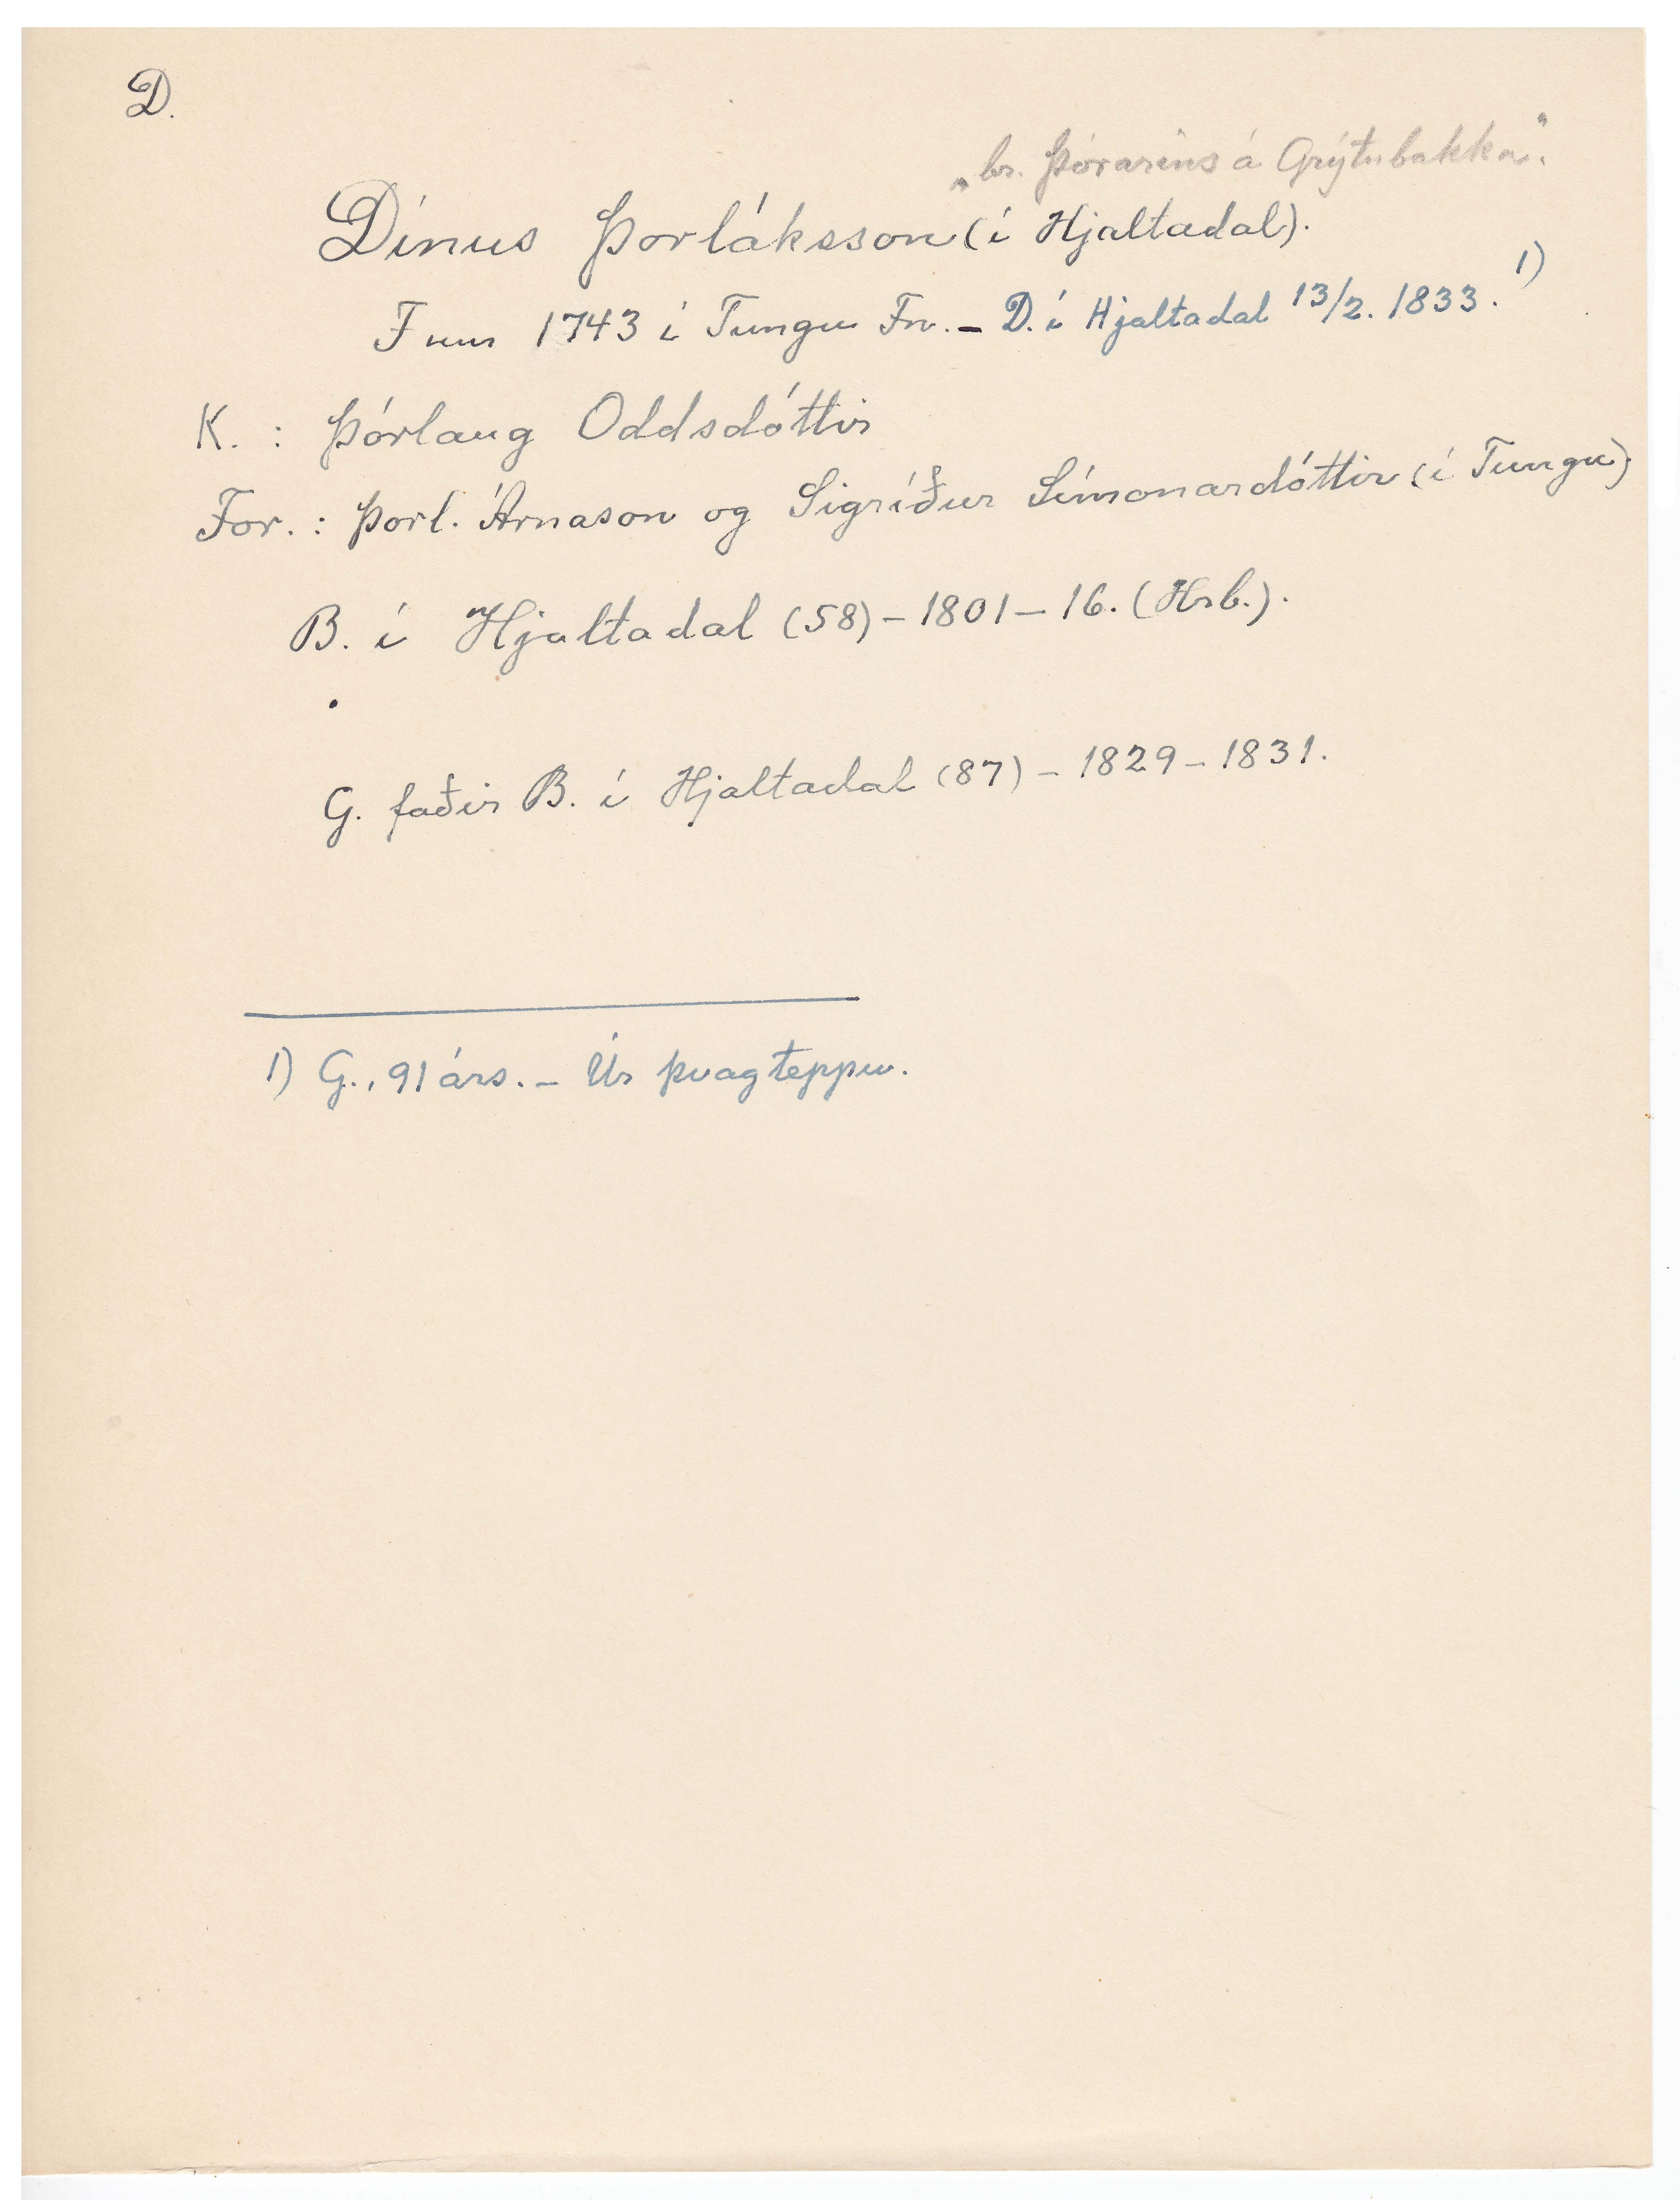 D.
„br. Þórarins á Grýtubakka".
Dínus Þorláksson (í Hjaltadal).
F um 1743 í Tungu Fn. – D. í Hjaltadal 13/2. 1833. 1)
K. : Þórlaug Oddsdóttir
For. : Þorl. Árnason og Sigríður Símonardóttir (í Tungu).
B. í Hjaltadal (58) – 1801 – 16. (Hrb.).
G. faðir B. í Hjaltadal (87) – 1829 – 1831.
1) G., 91 árs. – Úr þvagteppu.